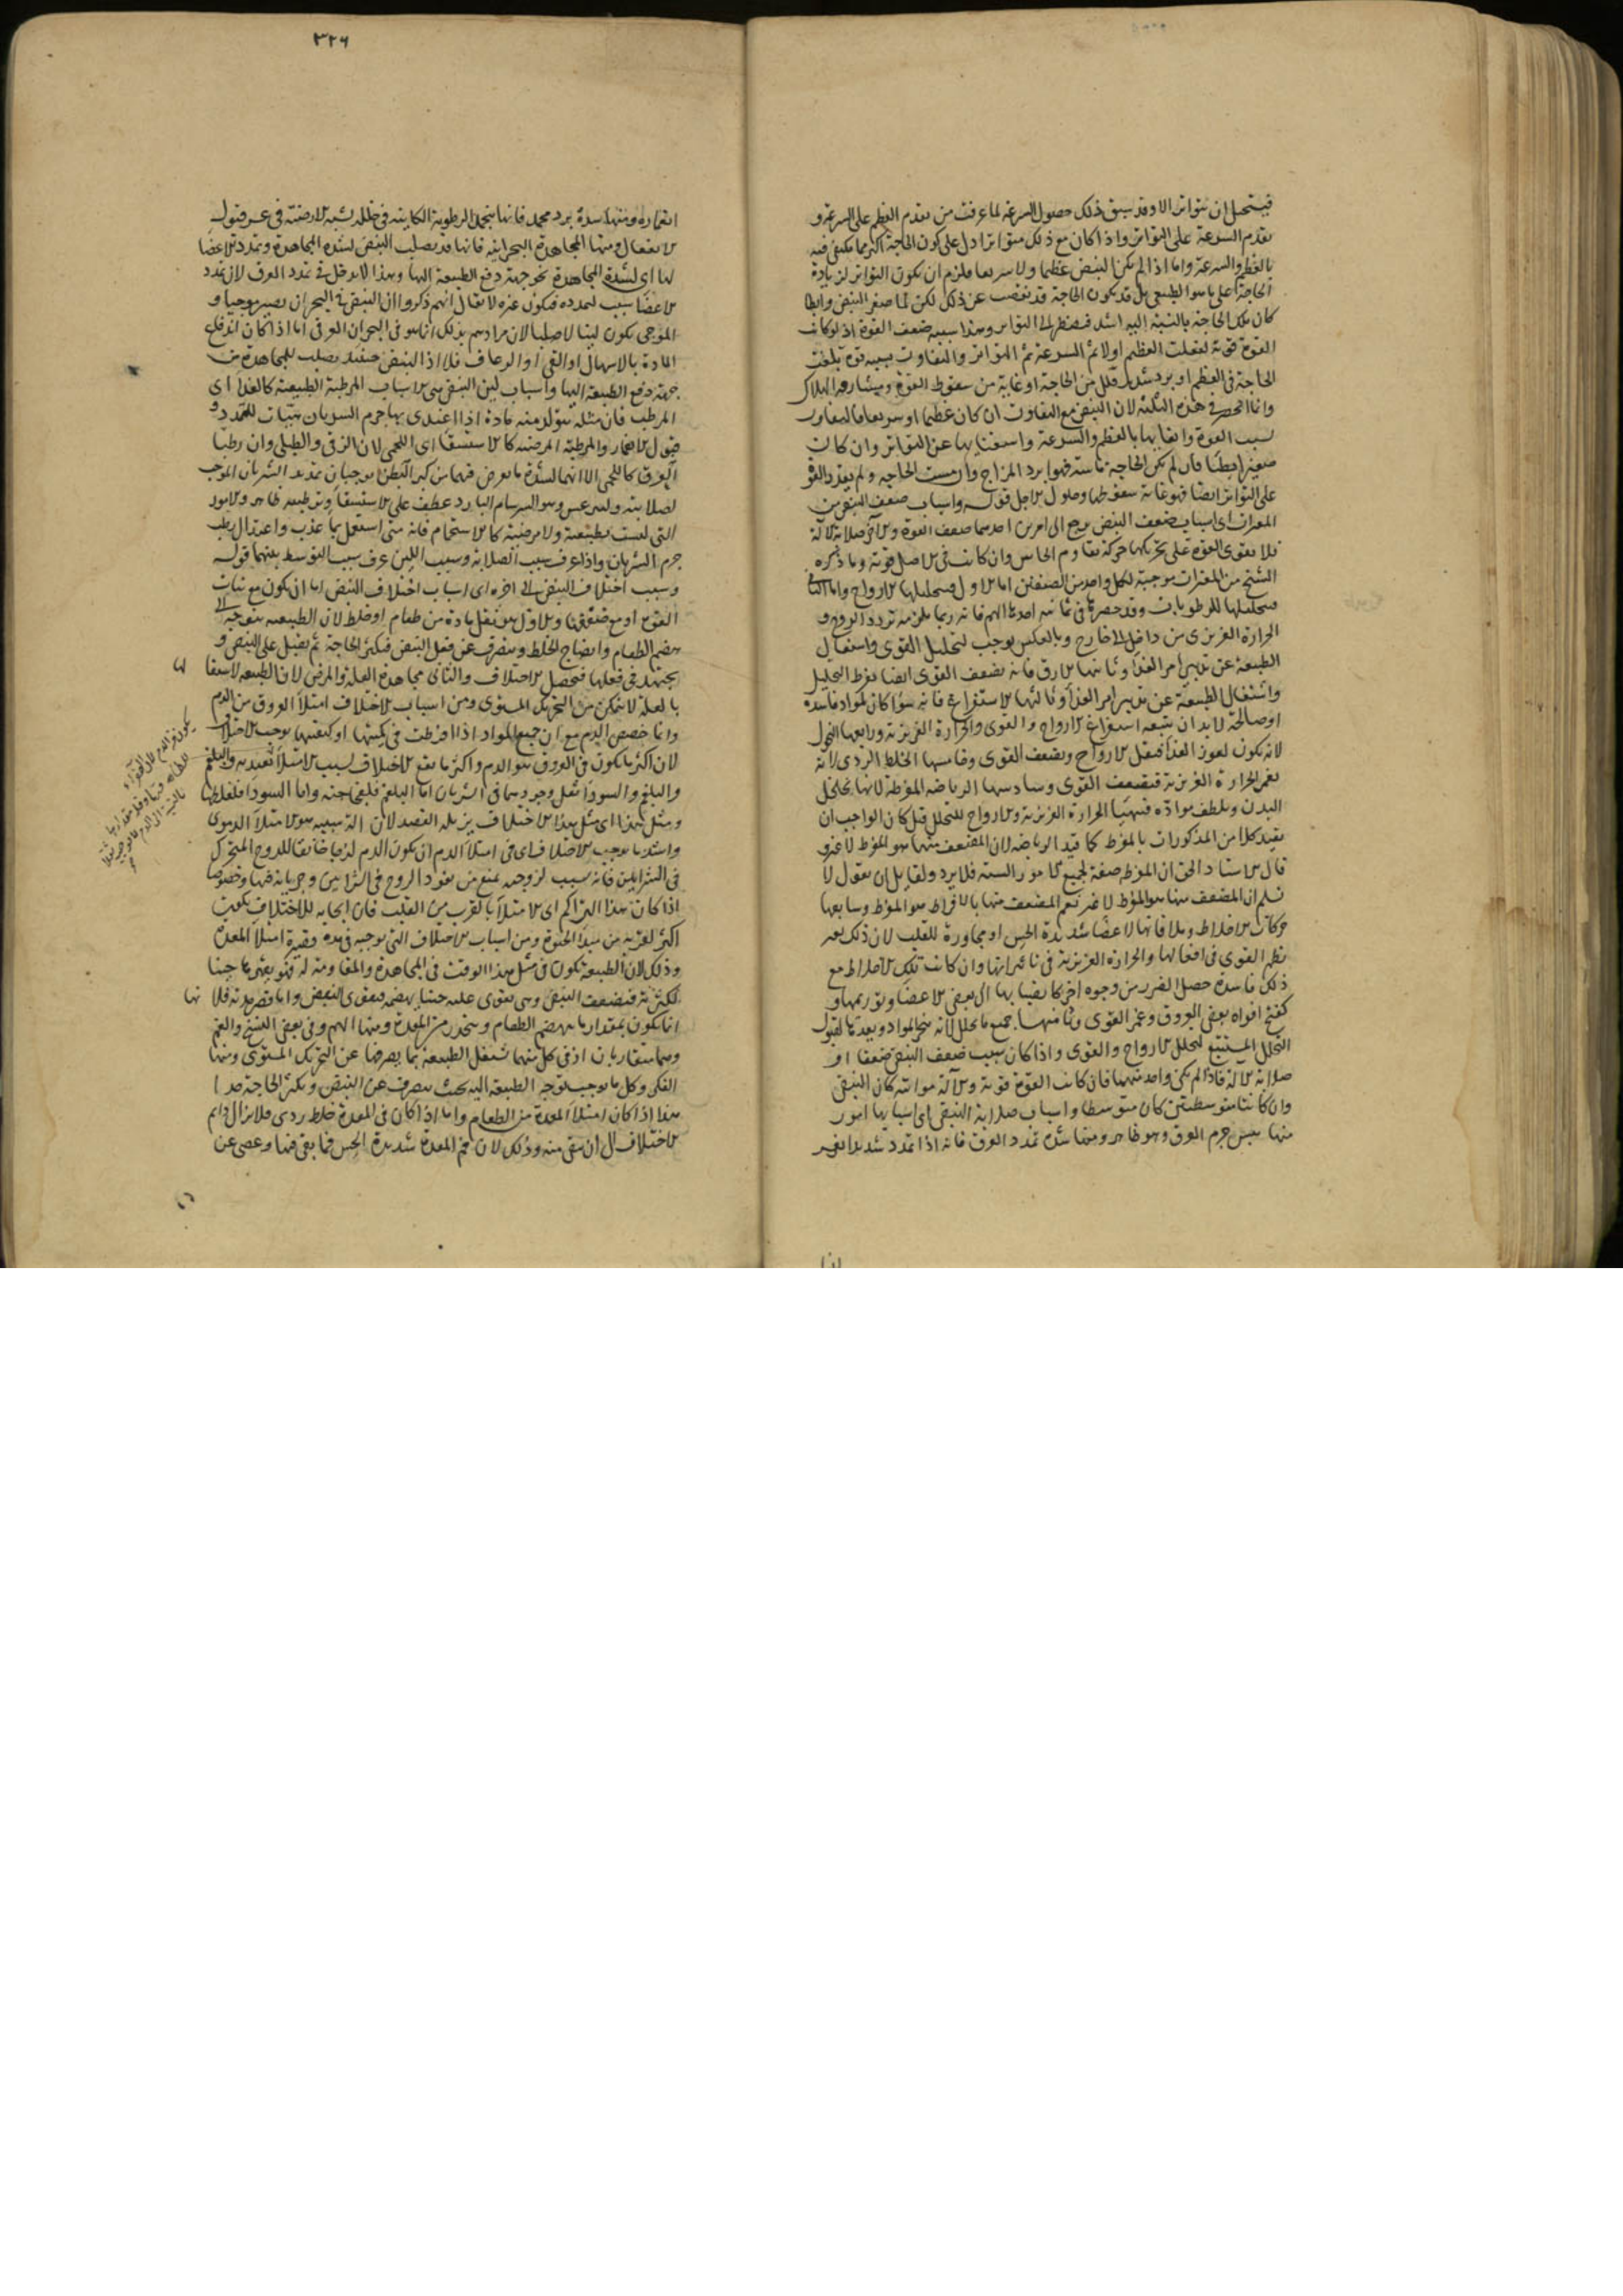 فيستحيل ان يتواتر الا وقد سبق ذلك حصول السرعة لما عرفت من تقدم العظم على السرعة و
تقدم السرعة على التواتر واذا كان مع ذلك متواترا دل على كون الحاجة اكثر مما يكتفى فيه
بالعظم والسرعة واما اذا لم يكن النبض عظيما ولا سريعا فلا يلزم ان يكون التواتر لزيادة
الحاجة على ما هو الطبيعي بل قد يكون الحاجة قد نقصت عن ذلك لكن لما صغر النبض وابطا
كان تلك الحاجة بالنسبة اليه اشد فيضطر الى التواتر وهذا سببه ضعف القوة اذ لو كانت
القوة قوية لفعلت العظم اولا ثم السرعة ثم التواتر والتفاوت سببه قوة بلغت
الحاجة في العظم او برد شديد قلل من الحاجة او غاية من سقوط القوة ومشارفة الهلاك
وانما انحصر في هذه الثلثة لان النبض مع التفاوت ان كان عظيما او سريعا فالتفاوت
لسبب القوة وايفائها بالعظم والسرعة واستغنائها عن التواتر وان كان
صغيرا بطيئا فان لم يكن الحاجة ماسة فهو لبرد المزاج وان مست الحاجة ولم يقدر القوة
على التواتر ايضا فهو غاية سقوطها وحلول الاجل قوله واسباب ضعف النبض من
المغيرات اى اسباب ضعف النبض يرجع الى امرين احدهما ضعف القوة والآخر صلابة الآلة
فلا يقوى القوة على تحريكها حركة تقاوم الحاس وان كانت في الاصل قوية وما ذكره
الشيخ من المغيرات موجبة لكل واحد من الصنفين اما الاول فبتحليلها الارواح واما الثاني
فبتحليلها للرطوبات وقد حصرها في ثمانية احدها الهم فانه ربما يلزمه تردد الروح و
الحرارة الغريزى من داخل الى خارج وبالعكس يوجب لتحليل القوى واشتغال
الطبيعة عن تدبير امر الغذا وثانيها الارق فانه يضعف القوى ايضا بفرط التحليل
واشتغال الطبيعة عن تدبير امر الغذا وثالثها الاستفراغ فانه سواء كان لمواد فاسدة
او صالحة لابد ان يتبعه استفراغ الارواح والقوى والحرارة الغريزية ورابعها النحول
لانه يكون لعوز الغذا فيقل الارواح ويضعف القوى وخامسها الخلط الردى لانه
يغمر الحرارة الغريزية فيضعف القوى وسادسها الرياضة المفرطة لانها تخلخل
البدن وتلطف مواده فيتهيا الحرارة الغريزية والارواح للتحلل قيل كان الواجب ان
يقيد كلا من المذكورات بالمفرط كما قيد الرياضة لان المضعف منها هو المفرط لا غير و
قال الاستاد الحق ان المفرطة صفة لجميع الامور الستة فلا يرد ولقائل ان يقول لا
نسلم ان المضعف منها هو المفرط لا غير نعم المضعف منها بالافراط هو المفرط وسابعها
حركات الاخلاط وملاقاتها لاعضا شديدة الحس او مجاورة للقلب لان ذلك
القوى في افعالها والحرارة الغريزية في تاثيراتها وان كانت تلك الاخلاط مع
ذلك فاسدة حصل الضرر من وجوه اخر كانصبابها الى بعض الاعضا وتوريمها و
كفتح افواه بعض العروق وغمر القوى وثامنها جميع ما يحلل لانه ينجر المواد ويعدها لقبول
التحلل المستتبع لتحلل الارواح والقوى واذا كان سبب ضعف النبض ضعفا او
صلابة الآلة فاذا لم يكن واحد منهما فان كانت القوة قوية والآلة مواتية كان النبض
وان كانتا متوسطتين كان متوسطا واسباب صلابة النبض اى اسبابها امور
منها يبس جرم العرق وهو ظاهر ومنها شدة تمدد العرق فانه اذا تمدد شديدا
٣٢٦
ومنها شدة برد مجمد فانها بتجمد الرطوبة الكائنة في خلله يشبه الارضية في عسر قبول
الانفعال ومنها المجاهدة البحرانية فانها قد يصلب النبض لشدة المجاهدة وتمدد الاعضا
لها اى لشدة المجاهدة نحو جهة دفع الطبيعة اليها وهذا لا يدخل في تمدد العرق لان تمدد
الاعضا سبب لتمدده فيكون غيره لا يقال انهم ذكروا ان النبض في البحران يصير موجيا و
الموجى يكون لينا لا صلبا لان مرادهم بذلك انما هو في البحران العرقى اما اذا كان اندفاع
المادة بالاسهال او القى او الرعاف فلا اذ النبض حينئذ يصلب للمجاهدة من
جهة دفع الطبيعة اليها واسباب لين النبض هى الاسباب المرطبة الطبيعية كالغذا اى
المرطب فان مثله يتولد منه مادة اذا اغتذى بها جرم الشريان تهيات للتمدد و
قبول الانغمار والمرطبة المرضية كالاستسقا اى اللحمى لان الزقى والطبلى وان رطبا
العرق كاللحمى الا انهما لشدة ما يعرض فيهما من كبر البطن يوجبان تمديد الشريان الموجب
لصلابته وليثرغس وهو السرسام البارد عطف على الاستسقا وترطيبه ظاهر والامور
التى ليست بطبيعية ولا مرضية كالاستحمام فانه متى استعمل بماء عذب واعتدال يرطب
جرم الشريان واذا عرف سبب الصلابة وسبب اللين عرف سبب التوسط بينهما قوله
وسبب اختلاف النبض الى اخره اى اسباب اختلاف النبض اما ان يكون مع ثبات
القوة او مع ضعفها والاول هو ثقل مادة من طعام او خلط لان الطبيعة يتوجه الى
هضم الطعام وانضاج الخلط وينصرف عن فعل النبض فيكثر الحاجة ثم يقبل على النبض و
يجتهد في فعلها فيحصل الاختلاف والثانى مجاهدة العلة والمرض لان الطبيعة لاشتغالها
بالعلة لا يتمكن من التحريك المستوى ومن اسباب الاختلاف امتلا العروق من الدم
وانما خصص الدم مع ان جميع المواد اذا افرطت في كميتها او كيفيتها يوجب الاختلاف
لان اكثر ما يكون في العروق هو الدم واكثر ما يقع الاختلاف لسبب الامتلا
والبلغم والسودا يقل وجودهما في الشريان اما البلغم فلفجاجته واما السودا فلغلظها
ومثل هذا اى مثل هذا الاختلاف يزيله الفصد لان سببه هو الامتلا الدموى
واشد ما يوجب الاختلاف اى في امتلا الدم ان يكون الدم لزجا خانقا للروح المتحرك
في الشرايين فانه سبب لزوجته يمنع من نفوذ الروح في الشرايين وجريانه فيها وخصوصا
اذا كان هذا التراكم اى الامتلا بالقرب من القلب فان ايجابه للاختلاف يكون
اكثر لقربه من مبدا القوة ومن اسباب الاختلاف التى يوجبه في مدة قصيرة امتلا المعدة
وذلك لان الطبيعة تكون في مثل هذا الوقت في المجاهدة والمقاومة له
لكثرته فيضعف النبض وهى تقوى عليه حينا بهضمه فيقوى النبض واما قصر مدته فلانها
انما يكون بمقدار ما ينهضم الطعام وينحدر من المعدة ومنها الهم وفي بعض النسخ والغم
وهما متقاربان اذ في كل منهما تشتغل الطبيعة بما يصرفها عن التحريك المستوى ومنها
الفكر وكل ما يوجب توجه الطبيعة اليه بحيث ينصرف عن النبض ويكثر الحاجة جدا
هذا اذا كان امتلا المعدة من الطعام واما اذا كان في المعدة خلط ردى فلا يزال دايم
الاختلاف الى ان ينقى منه وذلك لان فم المعدة شديدة الحس فما بقى فيها